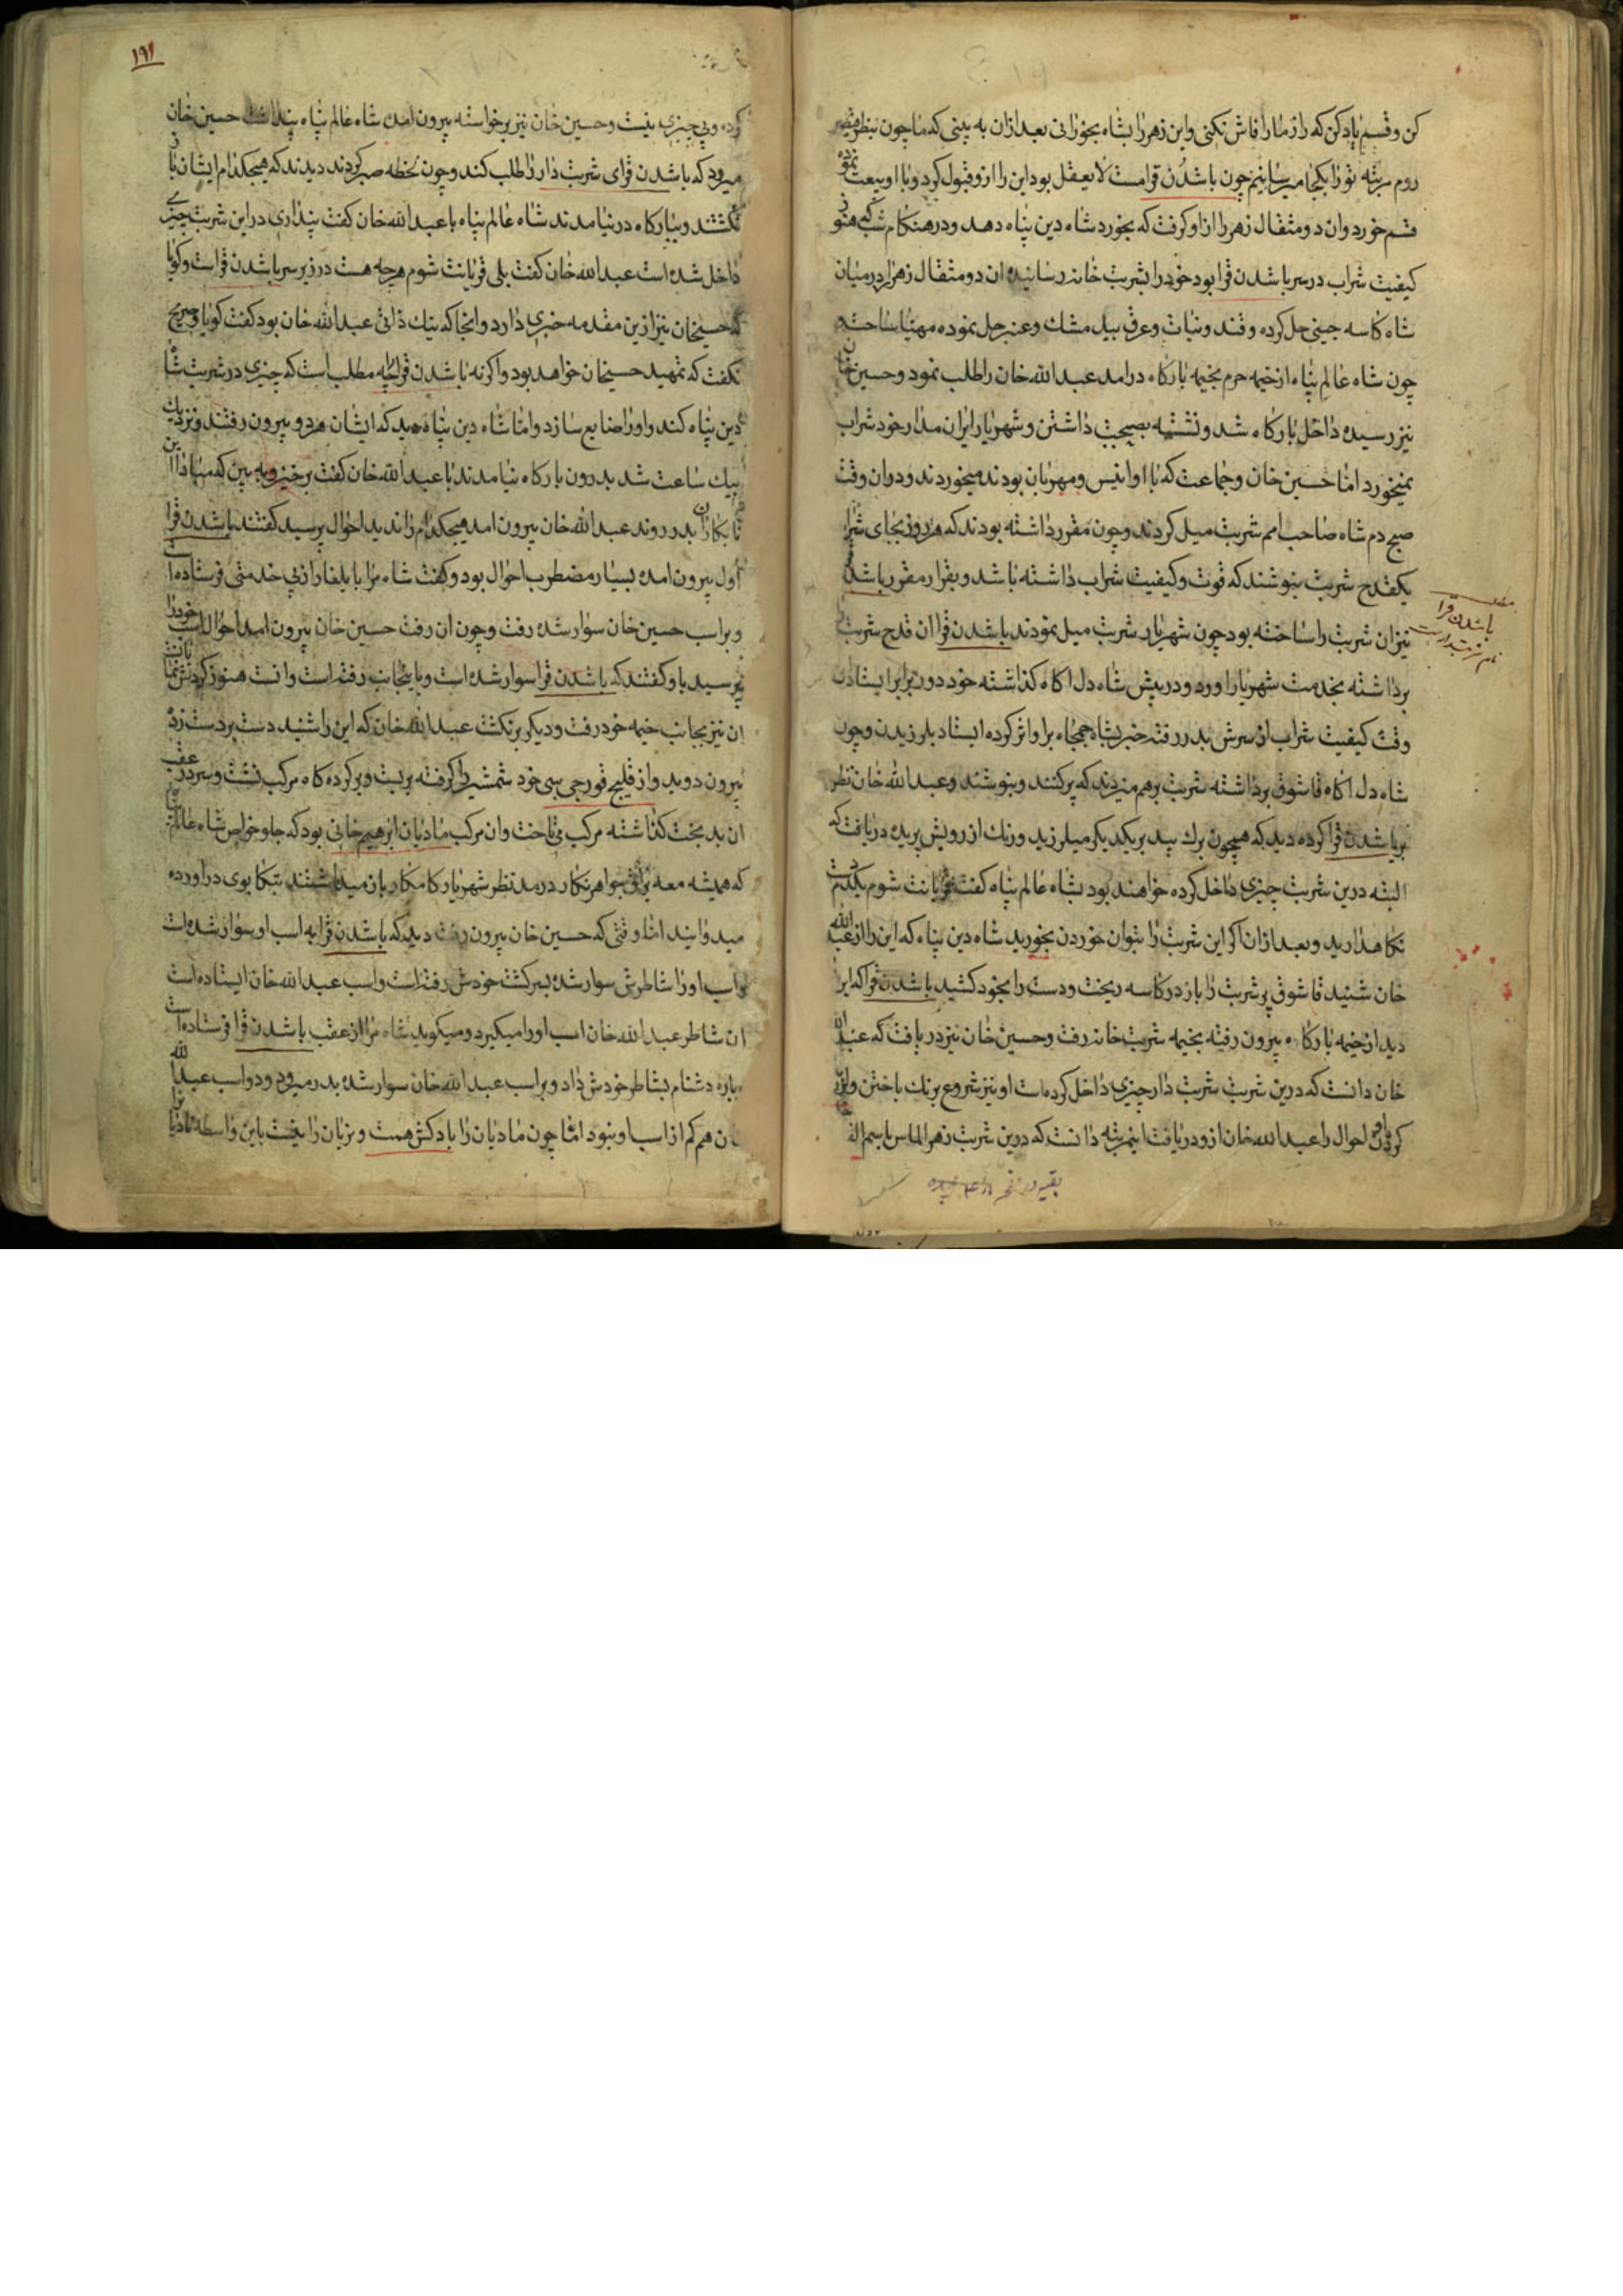 کن و قسم یاد کن که راز ما را فاش نکنی و این زهر را بشاه بخورانی بعد ازان به بینی که ما چون بنظر قیصر
روم مرتبه تو را بکجا میرسانیم چون باشدن قرا مست لا یعقل بود این را ازو قبول کرد و با او بیعت نموده
قسم خورد و ان دو مثقال زهر را از او کرفت که بخورد شاه دین پناه دهد و در هنکام شب که هنوز
کیفیت شراب در سر باشدن قرا بود خود را بشربت خانه رسانیده ان دو مثقال زهر را در میان
شاه کاسه چینی حل کرده و قند و نبات و عرق بید مشک و عنبر حل نموده مهیا ساخته
چون شاه عالم پناه از خیمه حرم بخیمه بارکاه درامد عبدالله خان را طلب نمود و حسین خان
نیز رسیده داخل بارکاه شد و نشسته بصحبت داشتن و شهریار ایران مدار خود شراب
نمیخورد اما حسین خان و جماعت که با او انیس و مهربان بودند میخوردند و دران وقت
صبح دم شاه صاحب امم شربت میل کردند و چون مقرر داشته بودند که هر روز بجای شراب
یکقدح شربت بنوشند که قوت و کیفیت شراب داشته باشد و بقرار مقرر باشدن
نیز ان شربت را ساخته بود چون شهریار شربت میل نمودند باشدن قرا ان قدح شربت
برداشته بخدمت شهریار اورد و در پیش شاه دل اکاه کذاشته خود در برابر ایستاد
وقت کیفیت شراب از سرش بدر رفته خبر بشاه جمجاه برا و اثر کرده ایستاد بلرزیدن و چون
شاه دل اکاه قاشوق برداشته شربت برهم میزدند که پر کنند و بنوشند و عبدالله خان نظر
بر باشدن قرا کرده دید که همچون برک بید بر یکدیکر میلرزید و رنک از رویش پریده دریافت که
البته درین شربت چیزی داخل کرده خواهند بود بشاه عالم پناه کفت قربانت شوم یکدم دست
نکاهدارید و بعد ازان اکر این شربت را بتوان خوردن بخورید شاه دین پناه که این را از عبدالله
خان شنید قاشوق پر شربت را باز در کاسه ریخت و دست را بخود کشید باشدن قرا که این را
دید از خیمه بارکاه بیرون رفته بخیمه شربت خانه رفت و حسین خان نیز دریافت که عبدالله
خان دانست که درین شربت شربت دار چیزی داخل کرده است او نیز شروع برنک باختن
کردن احوال را عبدالله خان ازو دریافت اینمرتبه دانست که درین شربت زهر الماس یا سم الفار
مطلب
باشدن قرا
نام شربتدار است
۱۹۱
کرده و بی چیزی نیست و حسین خان نیز برخواسته بیرون امد شاه عالم پناه پنداشت حسین خان
میرود که باشدن قرای شربت دار را طلب کند و چون لحظه صبر کردند دیدند که هیچکدام ایشان باز
نکشتند و ببارکاه در نیامدند شاه عالم پناه با عبدالله خان کفت پنداری در این شربت چیزی
داخل شده است عبدالله خان کفت بلی قربانت شوم هرچه هست در زیر سر باشدن قراست و کویا
که حسینخان نیز ازین مقدمه خبری دارد و انجا که نیک ذاتی عبدالله خان بود کفت کویا و صریح
نکفت که تمهید حسینخان خواهد بود و اکرنه باشدن قرا چه مطلب است که چیزی در شربت شاه
دین پناه کند و او را ضایع سازد و اما شاه دین پناه دید که ایشان هردو بیرون رفتند و نزدیک
بیک ساعت شد بدرون بارکاه نیامدند با عبدالله خان کفت برخیز و به بین که مبادا این
نابکاران بدر روند عبدالله خان بیرون امد هیچکدام را ندید احوال پرسید کفتند باشدن قرا
اول بیرون امده بسیار مضطرب احوال بود و کفت شاه مرا بایلغار از پی خدمتی فرستاده است
و براسب حسین خان سوار شده رفت و چون ان رفت حسین خان بیرون امد احوال اسب خود را
پرسید باو کفتند که باشدن قرا سوار شده است و باینجانب رفته است
ان نیز بجانب خیمه خود رفت و دیکر برنکشت عبدالله خان که این را شنید دست بردست زده
بیرون دوید و از قلیج قورچی سی خود شمشیر را کرفته بربست و برکرده کاه مرکب نشست و سر در عقب
ان بدبخت کذاشته مرکب می تاخت و ان مرکب مادیان ابرهیم خانی بود که جلو خواص شاه عالم پناه
که همیشه معه یراق جواهر نکار در مد نظر شهریار کامکار بان میداشتند بتکابوی دراورده
میدوانید اما وقتی که حسین خان بیرون رفت دید که باشدن قرا به اسب او سوار شده است
و اسب او را شاطرش سوار شده بسر کشت خودش رفته است و اسب عبدالله خان ایستاده است
ان شاطر عبدالله خان اسب او را میکیرد و میکوید شاه مرا از عقب باشدن قرا فرستاده است
پاره دشنام بشاطر خودش داد و براسب عبدالله خان سوار شده بدر میرود و دو اسب عبدالله
خان هم کم از اسب او نبود اما چون مادیان را بادکش همت و نریان را نیست باین واسطه مادیان